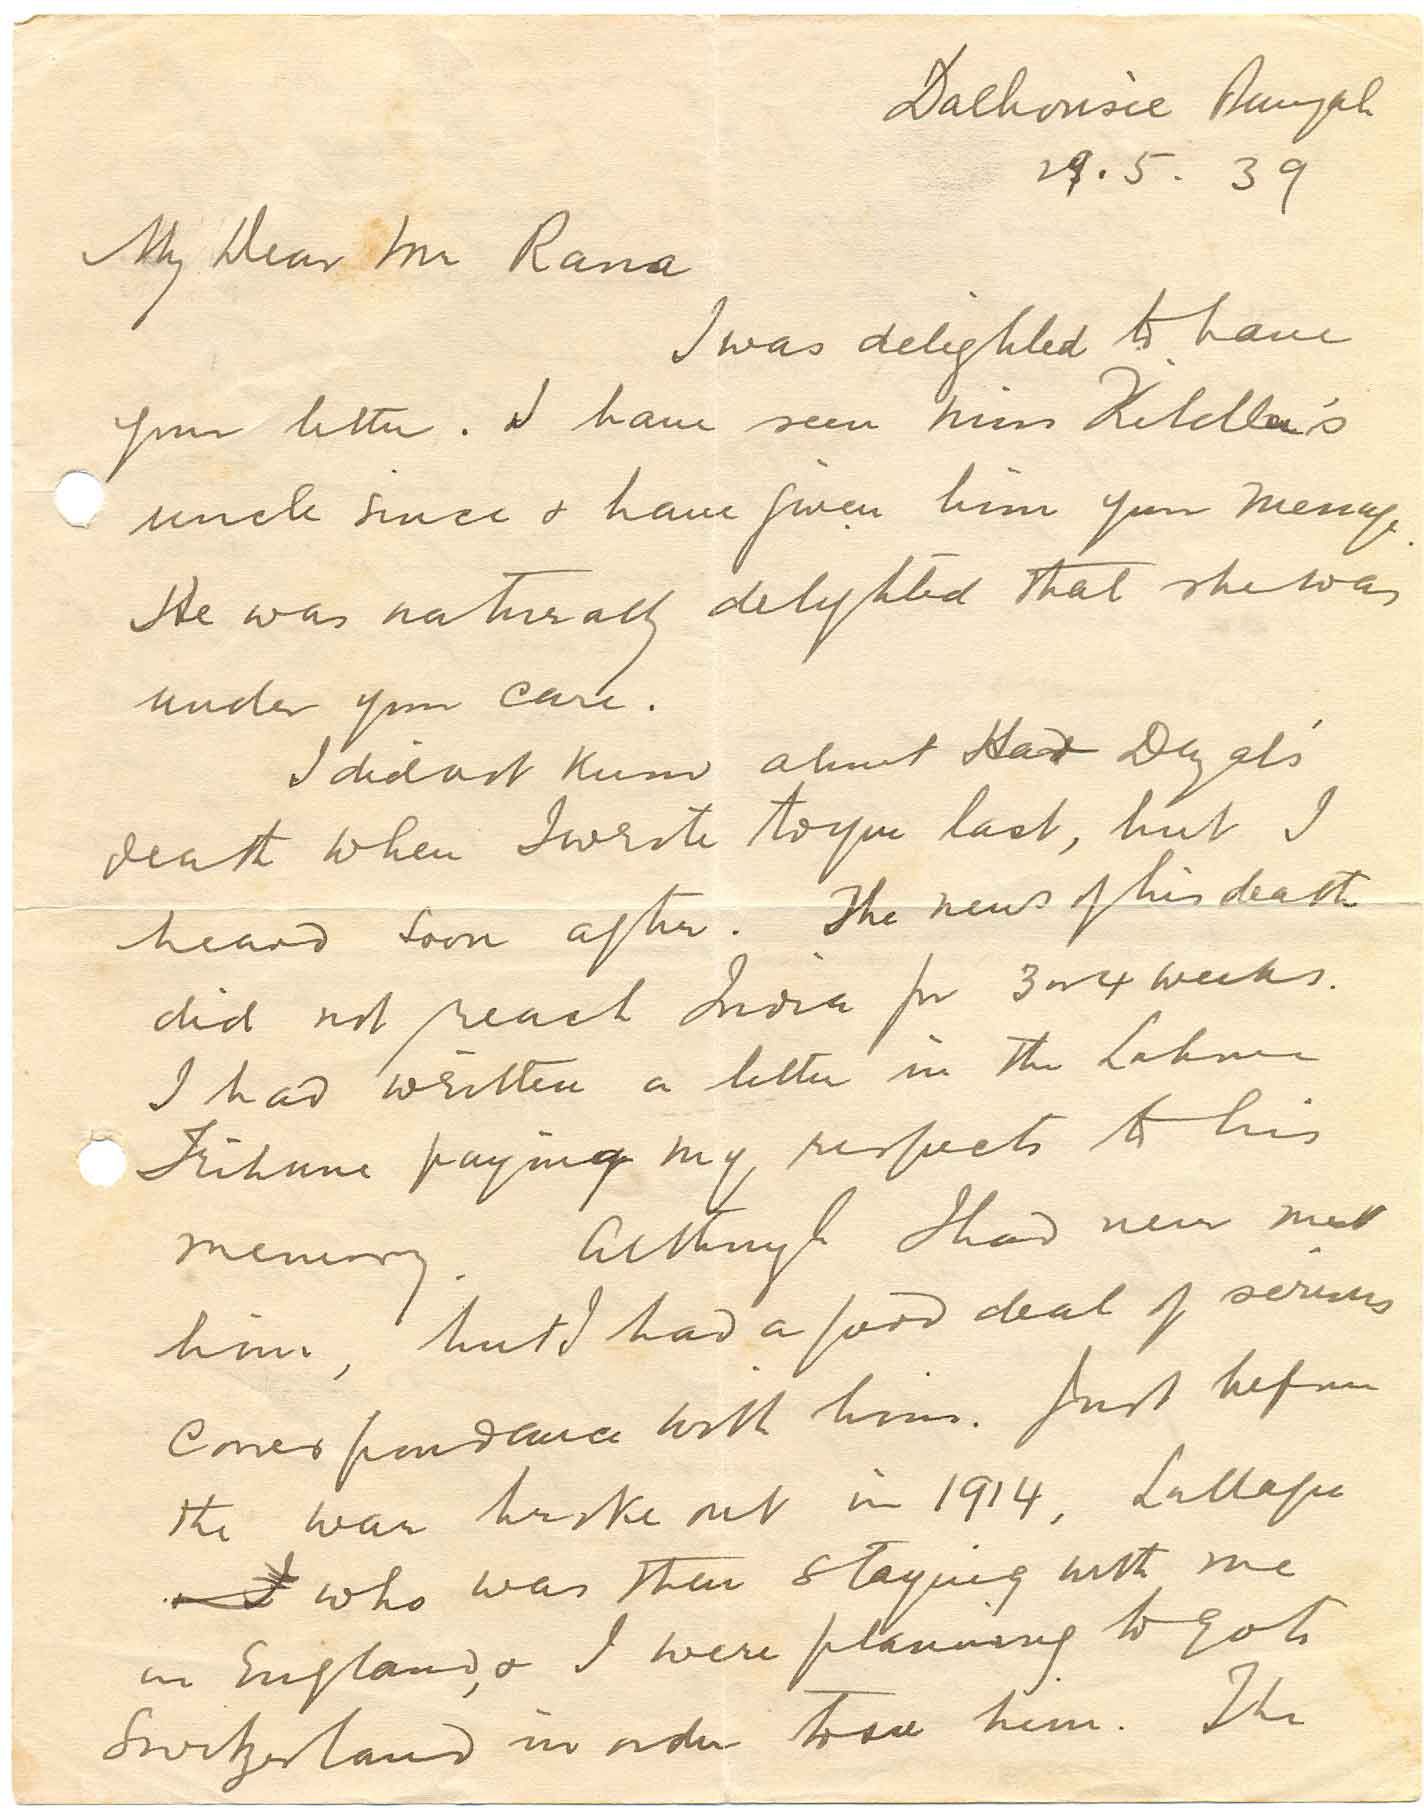 Dalhousie Punjab
29.5.39
My Dear Mr Rana
I was delighted to have
your letter. I have seen Miss
uncle since & have given him your message.
He was naturally delighted that she was
under your care.
I did not know about Har Dayal's
death when I wrote to you last, but I
heard soon after. The news of his death
did not reach India for 3 or 4 weeks.
I had written a letter in the Lahore
Tribune paying my respects to his
memory. Although I had never met
him, but I had a good deal of serious
correspondance with him. Just before
the war broke out in 1914,
who was then staying with me
in England, & I were planning to go to
Switzerland in order to see him. The